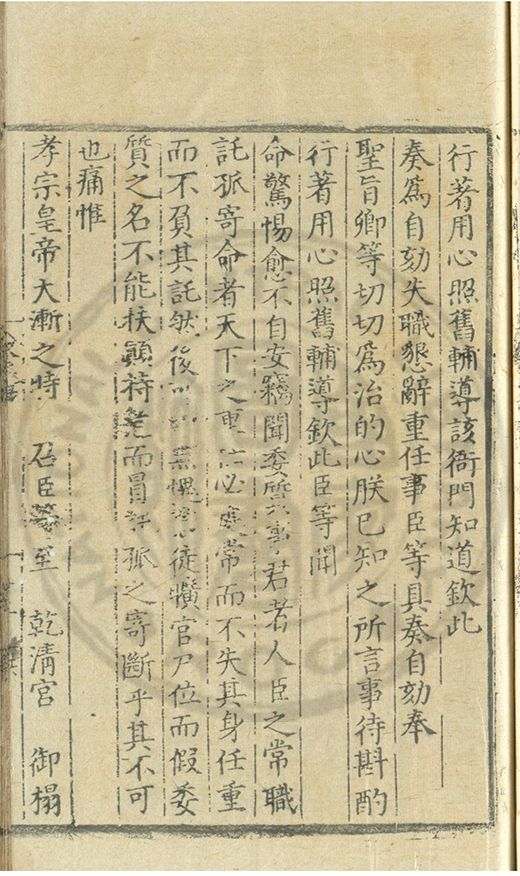 行著用心照舊輔導該衙門知道欽此
奏為自劾失職懇辭重任事臣等具奏自劾奉
聖旨卿等切切為治的心朕已知之所言事待斟酌
行著用心照舊輔導欽此臣等聞
命驚惕愈不自安竊聞委質事君者人臣之常職
託孤寄命者天下之重 必 常而不失其身任重
而不負其託然後 無愧 徒㿂官尸位而假委
質之名不能扶顛持危而冒 孤之寄斷乎其不可
也痛惟
孝宗皇帝大漸之時 召臣等至 乾清宮 御榻